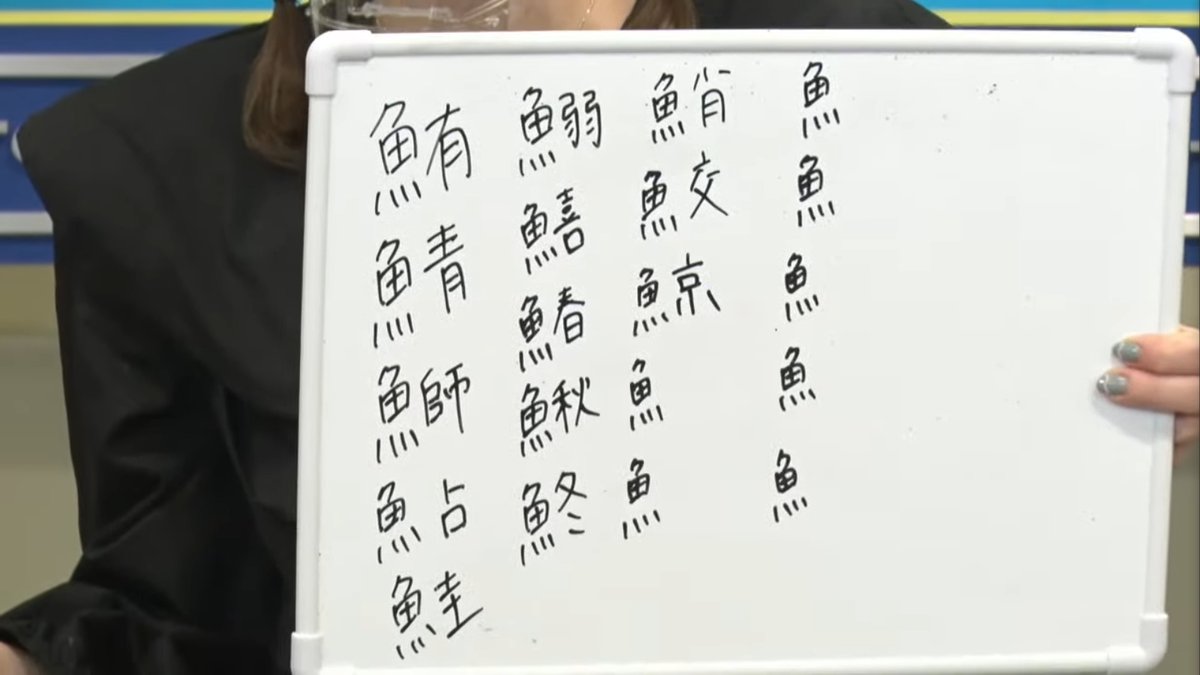 鮪
鯖
鰤
鮎
鮭
鰯
鱚
鰆
鰍
鮗
鮹
鮫
鯨
魚
魚
魚
魚
魚
魚
魚